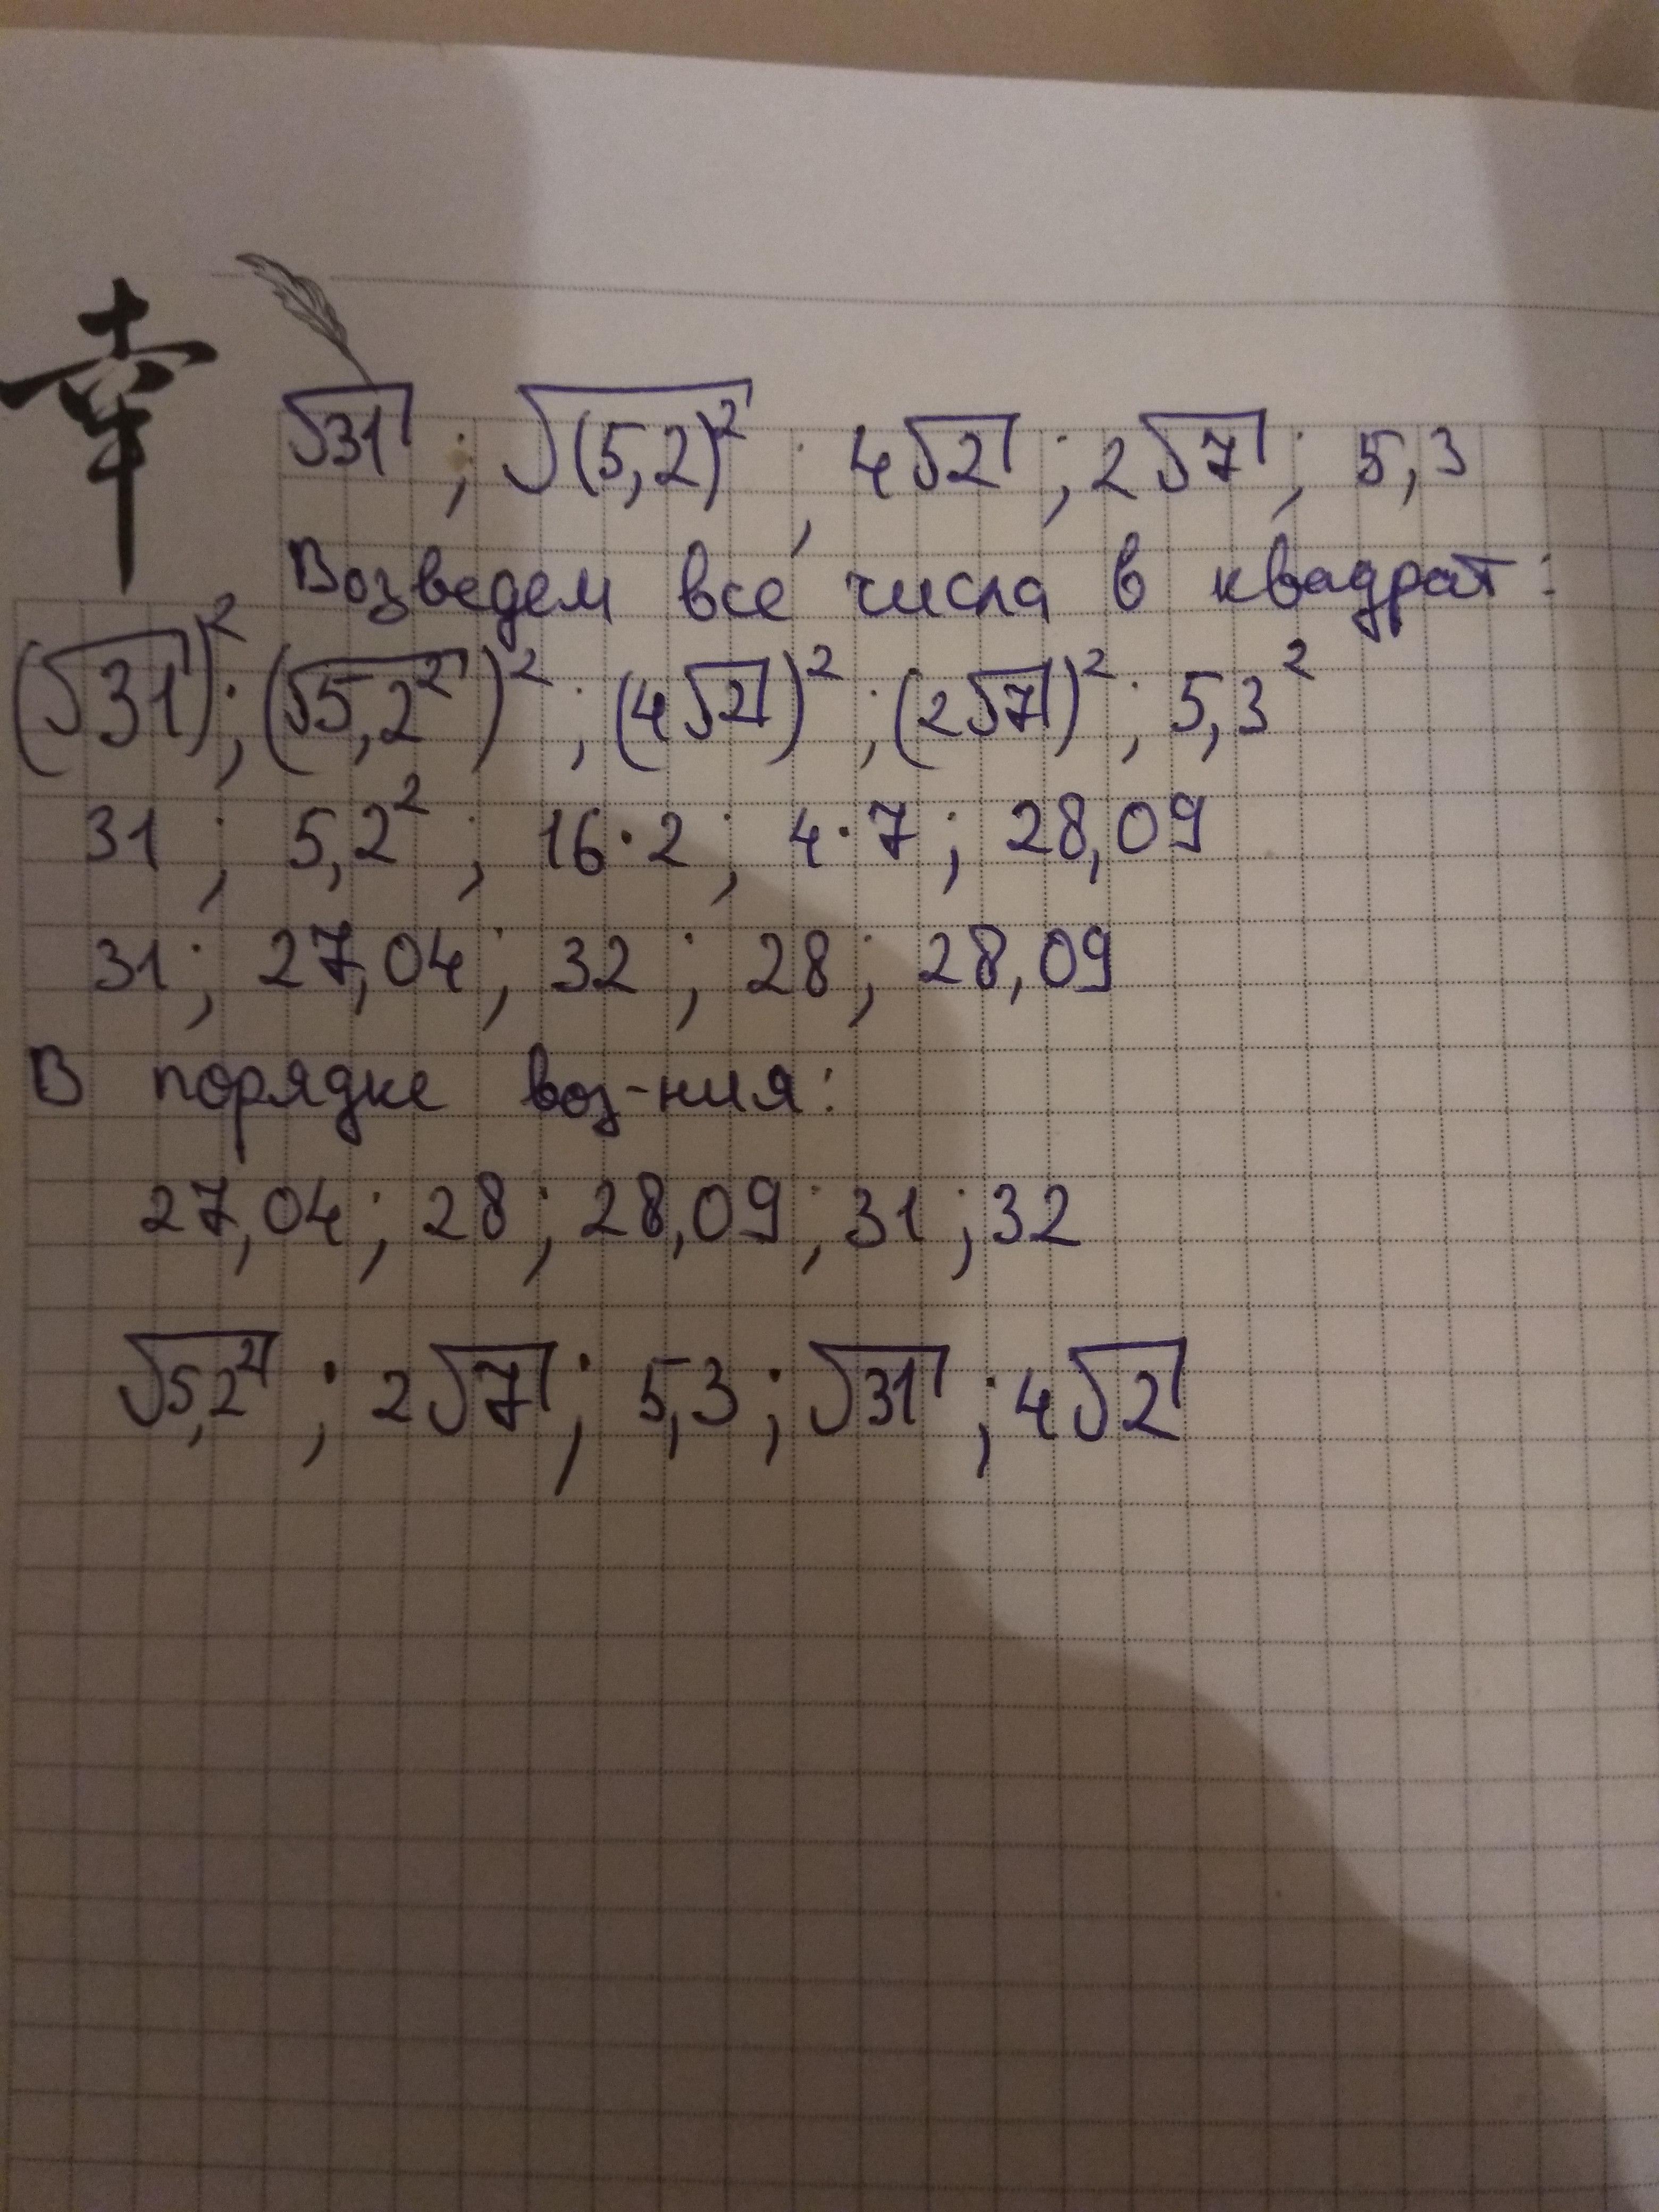 幸
√31 ; √(5,2)² ; 4√2 ; 2√7 ; 5,3
Возведем все числа в квадрат:
(√31)² ; (√5,2²)² ; (4√2)² ; (2√7)² ; 5,3²
31 ; 5,2² ; 16·2 ; 4·7 ; 28,09
31 ; 27,04 ; 32 ; 28 ; 28,09
В порядке воз-ния:
27,04 ; 28 ; 28,09 ; 31 ; 32
√5,2² ; 2√7 ; 5,3 ; √31 ; 4√2